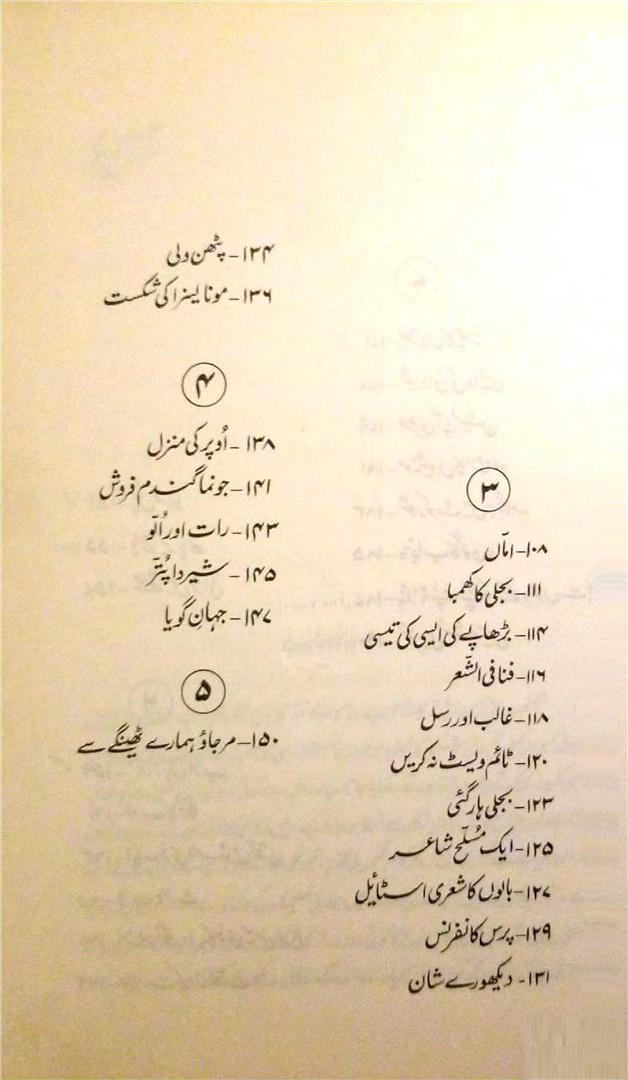 ۳
۱۰۸- امّاں
۱۱۱- بجلی کا کھمبا
۱۱۴- بڑھاپے کی ایسی کی تیسی
۱۱۶- فنا فی الشّعر
۱۱۸- غالب اور رسل
۱۲۰- ٹائم ویسٹ نہ کریں
۱۲۳- بجلی ہار گئی
۱۲۵- ایک مُسلّح شاعر
۱۲۷- بالوں کا شعری اسٹائیل
۱۲۹- پرس کانفرنس
۱۳۱- دیکھو رے شان
۱۳۴- پٹھن ولی
۱۳۶- مونا لیزا کی شکست
۴
۱۳۸- اُوپر کی منزل
۱۴۱- جو نما گندم فروش
۱۴۳- رات اور اُلّو
۱۴۵- شیر دا پُتّر
۱۴۷- جہانِ گویا
۵
۱۵۰- مر جاؤ ہمارے ٹھینگے سے